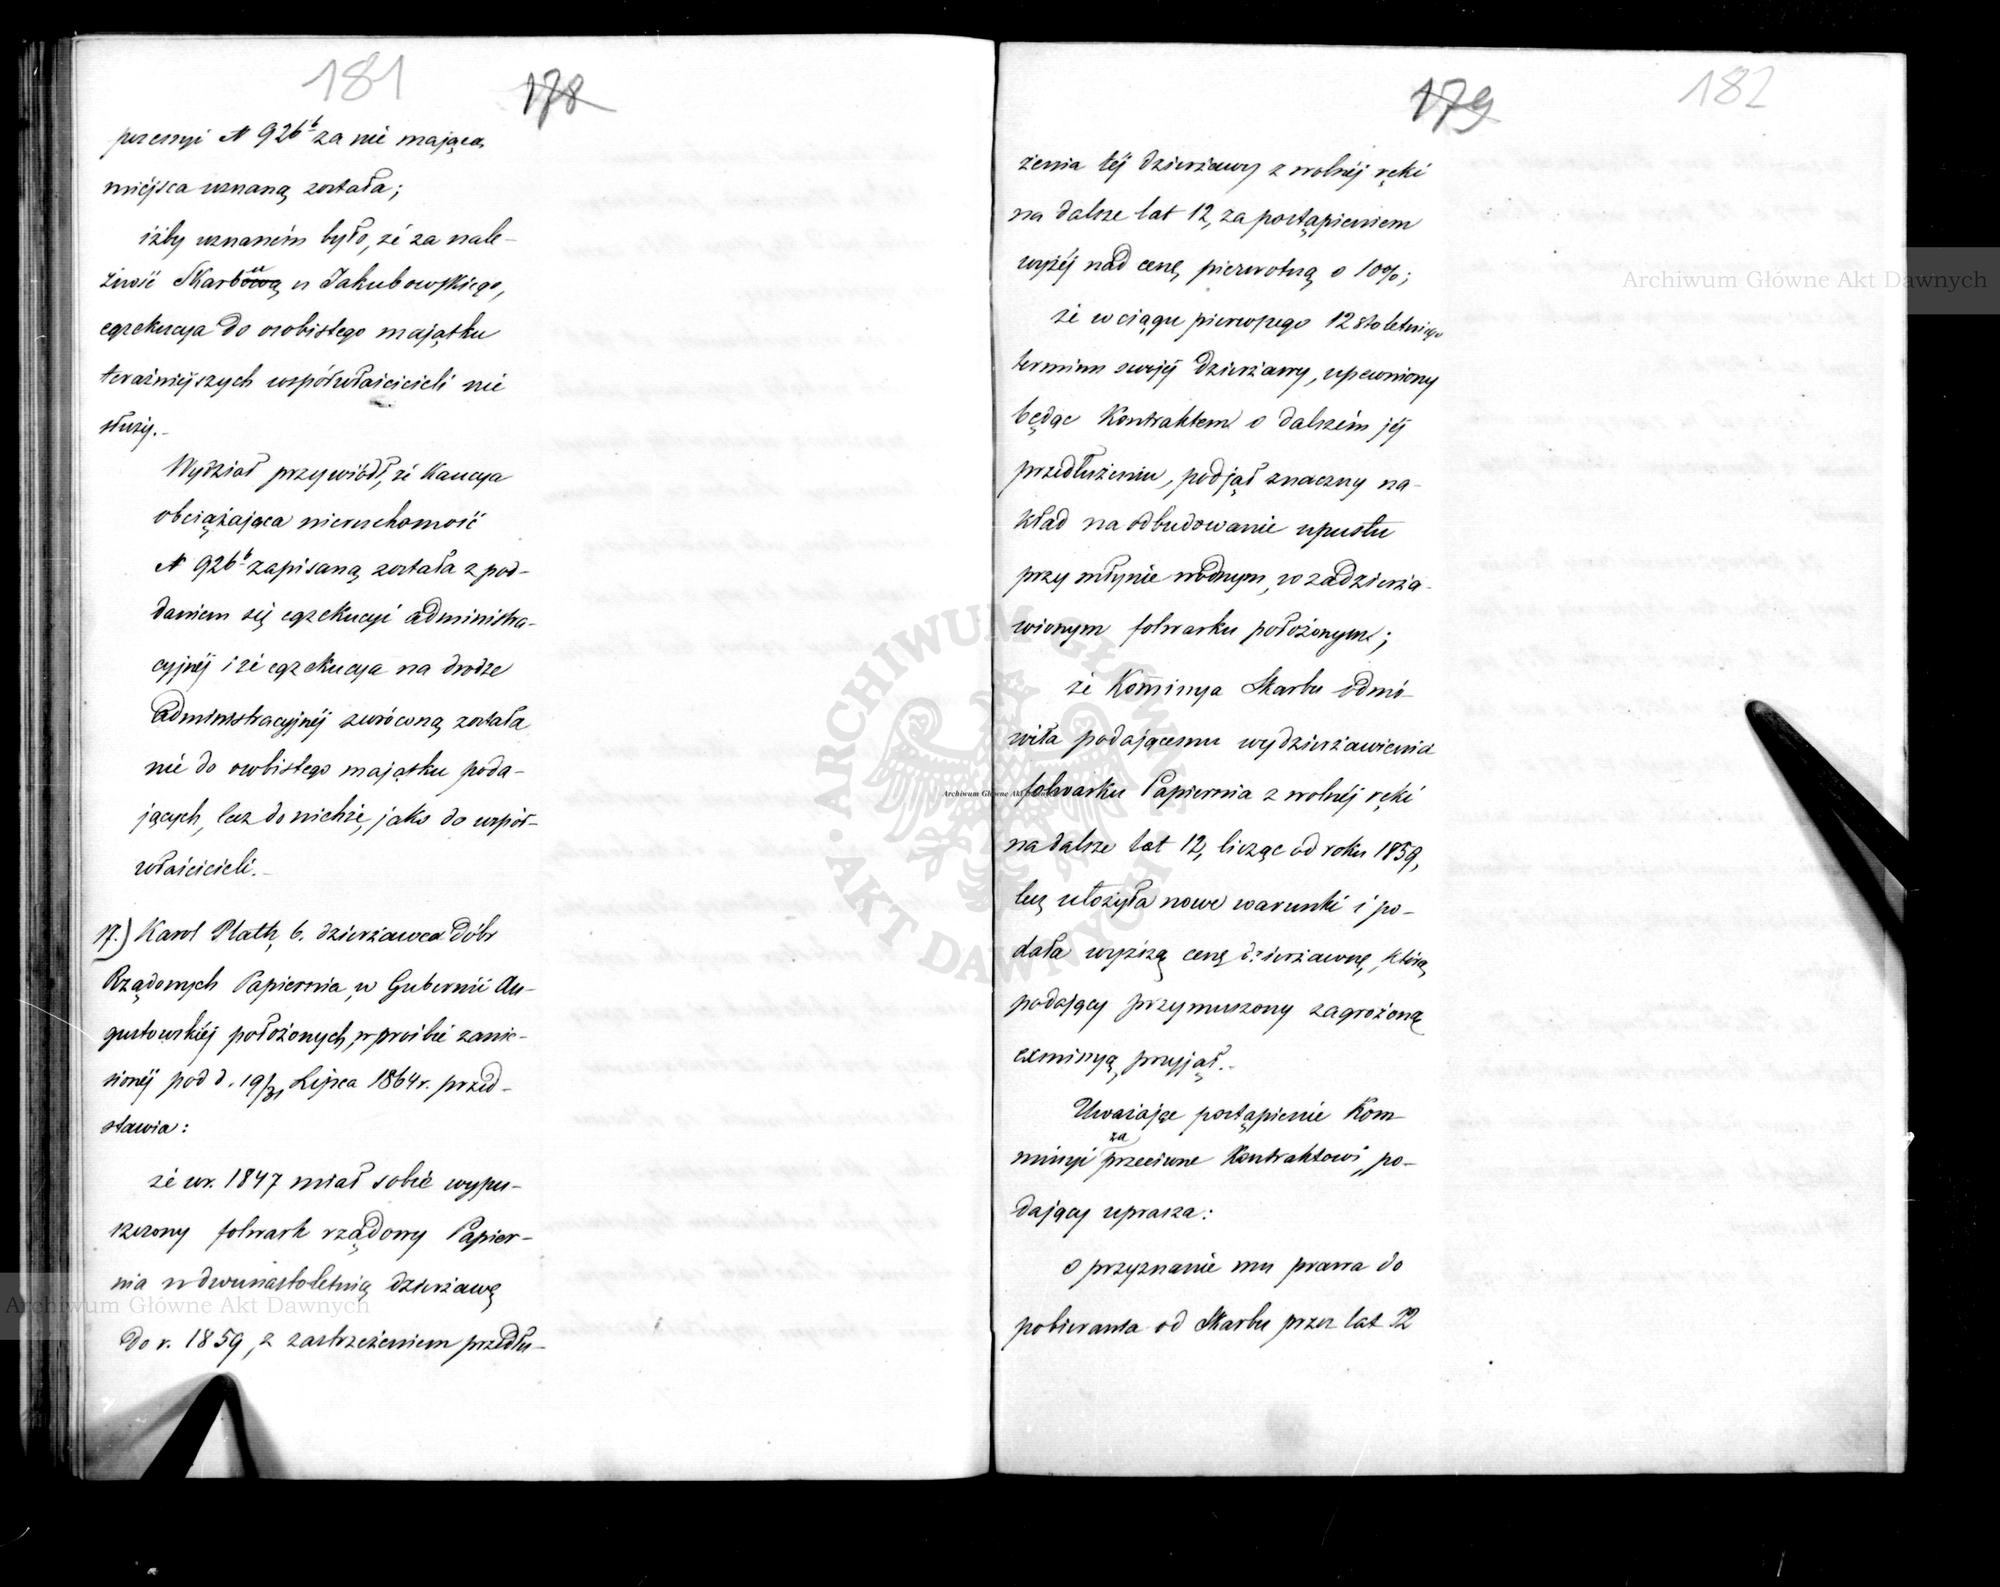 181
178
pozessyi N 926b za nie mającą
miéjsca uznaną została;
iżby uznaném było, że za nale-
żność Skarbu u Jakubowskiego,
egzekucya do osobistego majątku
teraźniejszych współwłaścicieli nie
służy.-
Wydział przywiódł, że Kaucya
obciążająca nieruchomość
N 926b zapisaną została z pod-
daniem się egzekucyi administra-
cyjnéj i że egzekucya na drodze
administracyjnéj zwróconą została
nie do osobistego majątku poda-
jących, lecz do nichże, jako do współ-
właścicieli.-
17.) Karol Plath, b. dzierżawca dóbr
Rządowych Papiernia, w Gubernii Au-
gustowskiéj położonych, w prośbie zanie-
sionéj pod d. 19/31 Lipca 1864 r. przed-
stawia:
że w r. 1847 miał sobie wypu-
szczony folwark rządowy Papier-
nia w dwunastoletnią dzierżawę
do r. 1859, z zastrzeżeniem przedłu-
179
182
żenia téj dzierżawy z wolnéj ręki
na dalsze lat 12, za postąpieniem
wyżéj nad cenę pierwotną o 10%;
że w ciągu pierwszego 12stoletniego
terminu swojéj dzierżawy, upewniony
będąc Kontraktem o dalszém jéj
przedłużeniu, podjął znaczny na-
kład na odbudowanie upustu
przy młynie wodnym, w zadzierża-
wionym folwarku położonym;
że Kommisya Skarbu odmó-
wiła podającemu wydzierżawienia
folwarku Papiernia z wolnéj ręki
na dalsze lat 12, licząc od roku 1859,
lecz ułożyła nowe warunki i po-
dała wyższą cenę dzierżawną, którą
podający przymuszony zagrożoną
exmisyą, przyjął.-
Uważając postąpienie Kom-
misyi za przeciwne Kontraktowi, po-
dający uprasza:
o przyznanie mu prawa do
pobierania od Skarbu przez lat 12
Archiwum Główne Akt Dawnych
Archiwum Główne Akt Dawnych
Archiwum Główne Akt Dawnych
ARCHIWUM GŁÓWNE AKT DAWNYCH